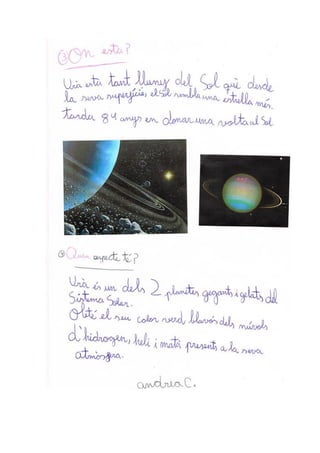 ③ On està?
Urà està tant lluny del Sol què desde
la seva superfície, el Sol sembla una estrella més.
tarda 84 anys en donar una volta al Sol
④ Quin aspecte té?
Urà és un dels 2 planetes gegants i gelats del
Sistema Solar.
Obté el seu color verd blavós dels núvols
d'hidrogen, heli i metà presents a la seva
atmòsfera.
andrea C.